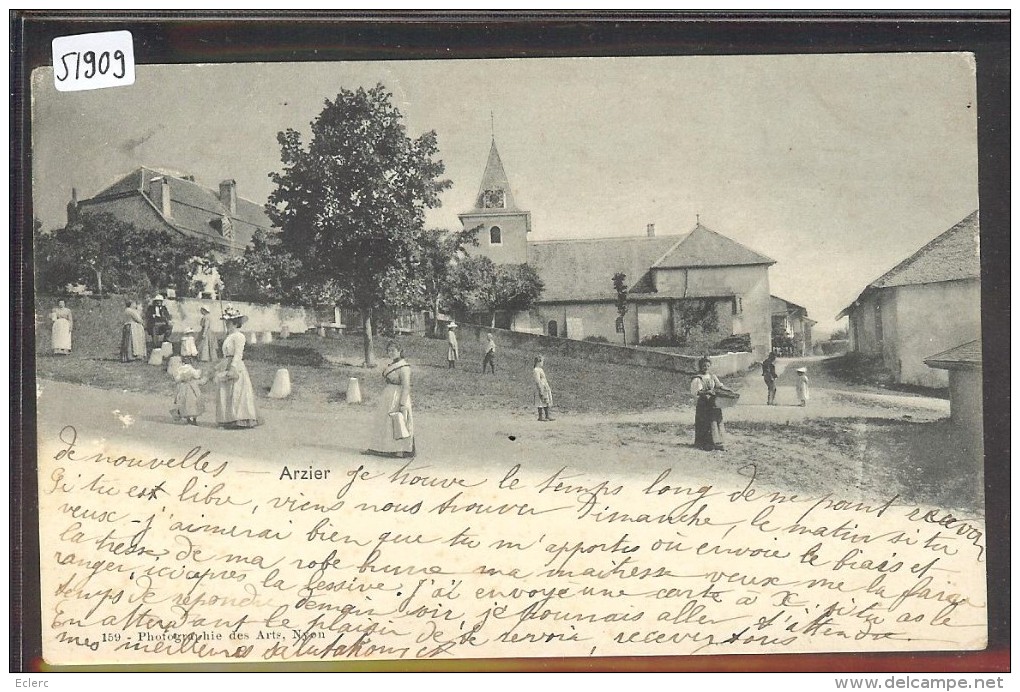 51909
Arzier je trouve le temps long de ne point recevoir
de nouvelles —
Si tu est libre, viens nous trouver Dimanche, le matin si tu
veux. J'aimerai bien que tu m'apportes où envoie le biais et
la tresse de ma robe brune ma maîtresse veux me la faire
ranger, ici après la lessive. J'ai envoyé une carte à X, si tu as le
temps de répondre demain soir, je pourrais aller t'attendre.
En attendant le plaisir de te revoir, recevez tous
159 - Photographie des Arts, Nyon
mes meilleures salutations
Eclerc
www.delcampe.net